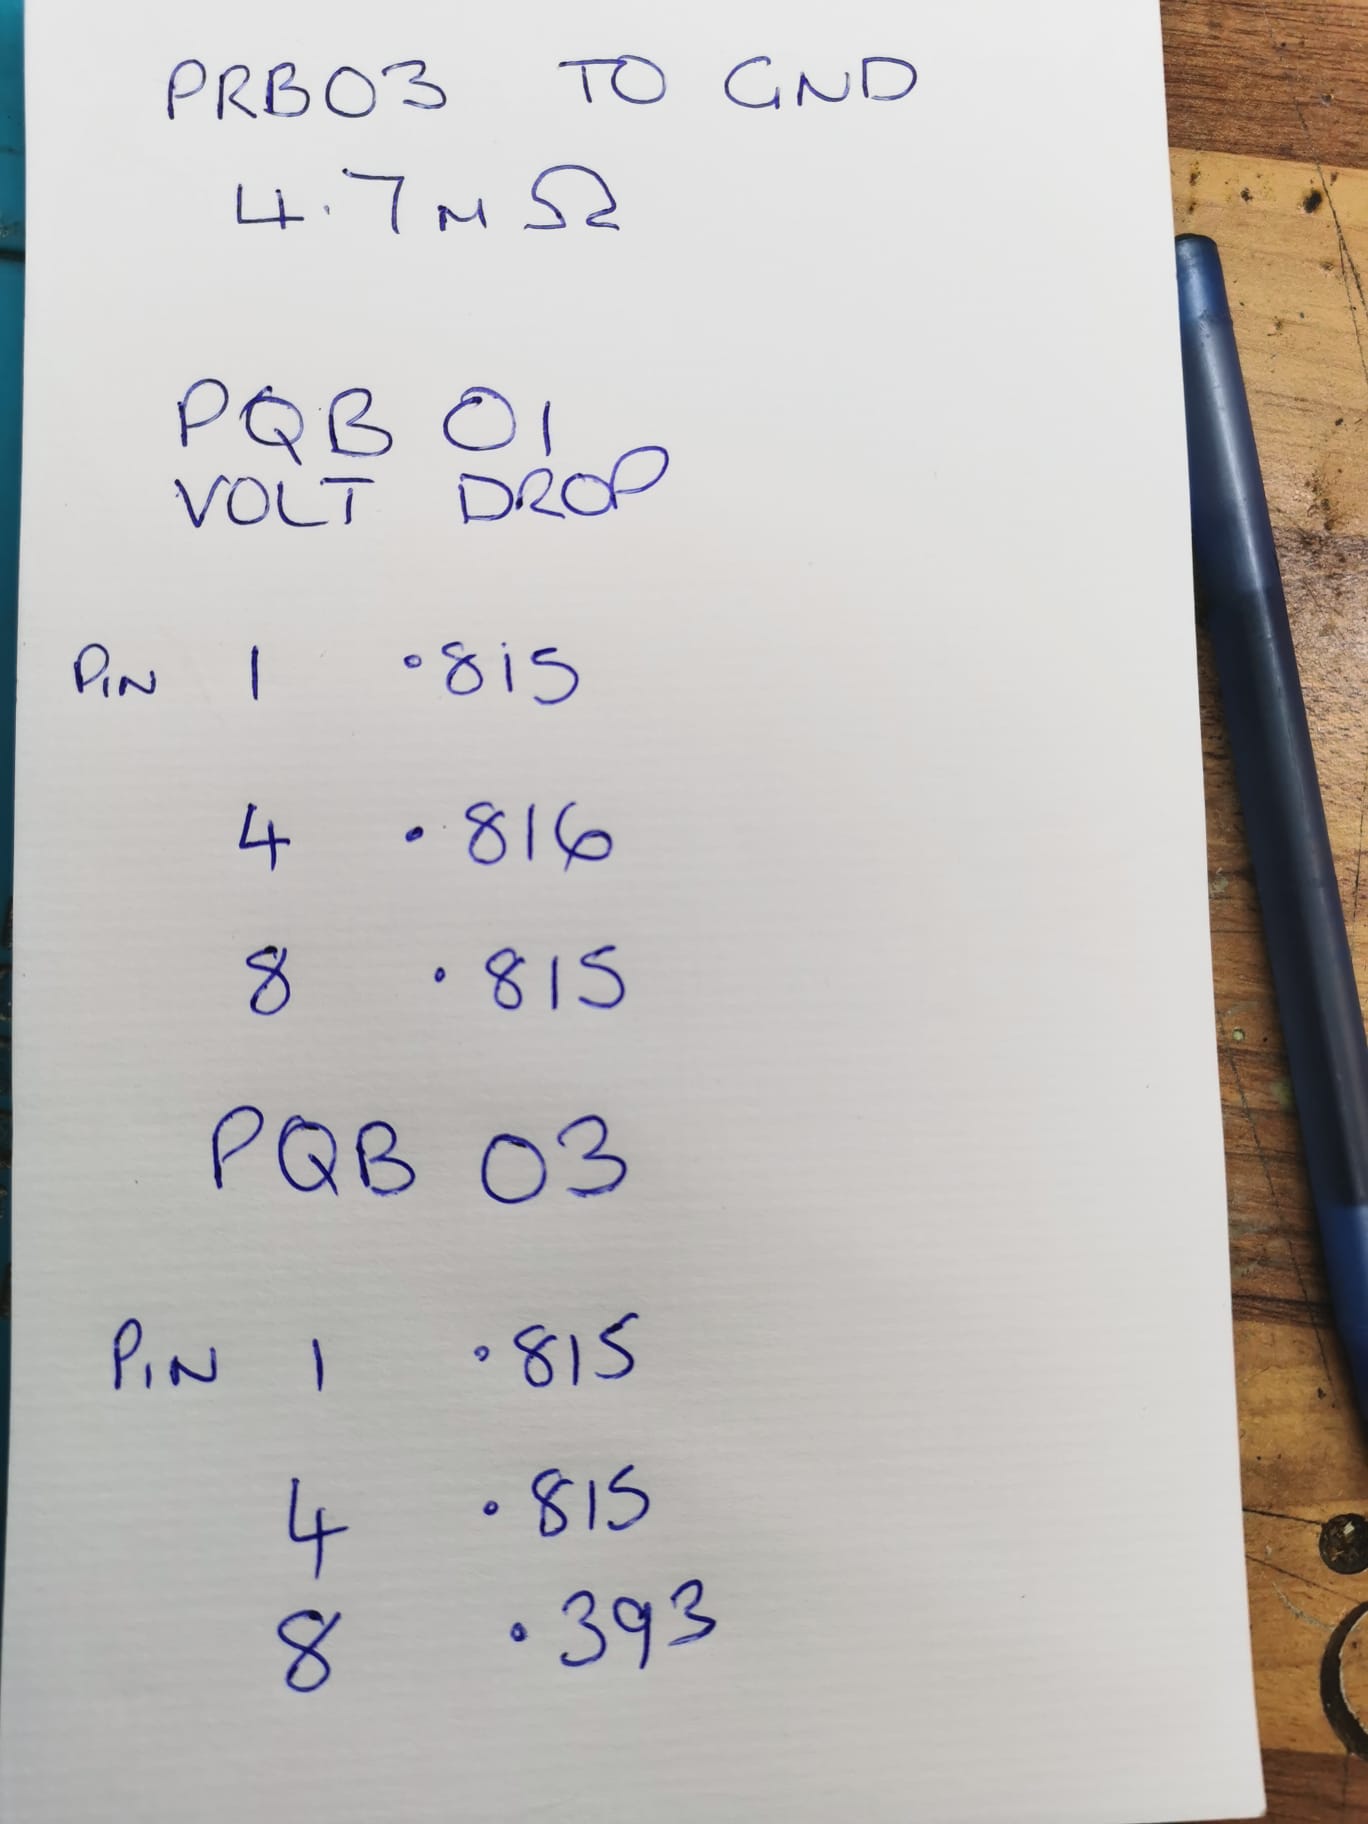 PRB03 TO GND
4.7M Ω
PQB 01
VOLT DROP
PIN 1 .815
4 .816
8 .815
PQB 03
PIN 1 .815
4 .815
8 .393